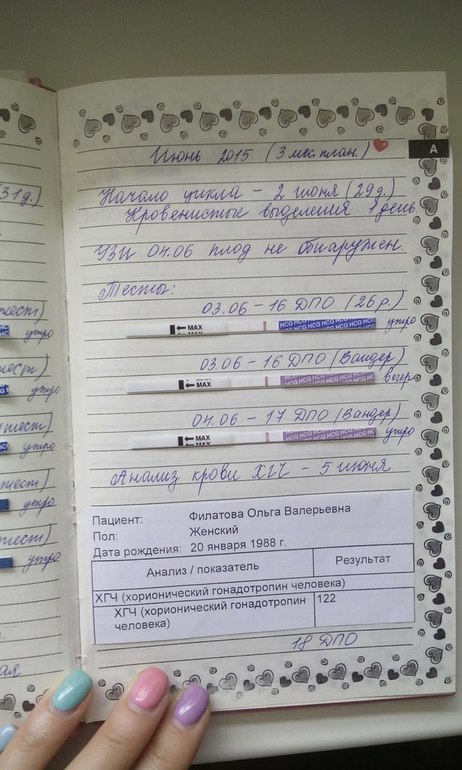 31 д.)
Июнь 2015 (3 мес. план.)
A
Начало цикла - 2 июня (29 д.)
Кровенистые выделения 1 день.
УЗИ 04.06 плод не обнаружен.
Тесты:
03.06 - 16 ДПО (26 р.)
MAX HCG HCG HCG HCG HCG утро
03.06 - 16 ДПО (Вандер)
MAX HCG HCG HCG HCG HCG вечер
04.06 - 17 ДПО (Вандер)
MAX HCG HCG HCG HCG HCG утро
Анализ крови ХГЧ - 5 июня
Пациент: Филатова Ольга Валерьевна
Пол: Женский
Дата рождения: 20 января 1988 г.
Анализ / показатель Результат
ХГЧ (хорионический гонадотропин человека)
ХГЧ (хорионический гонадотропин 122
человека)
18 ДПО
утро
утро
утро
утро
утро